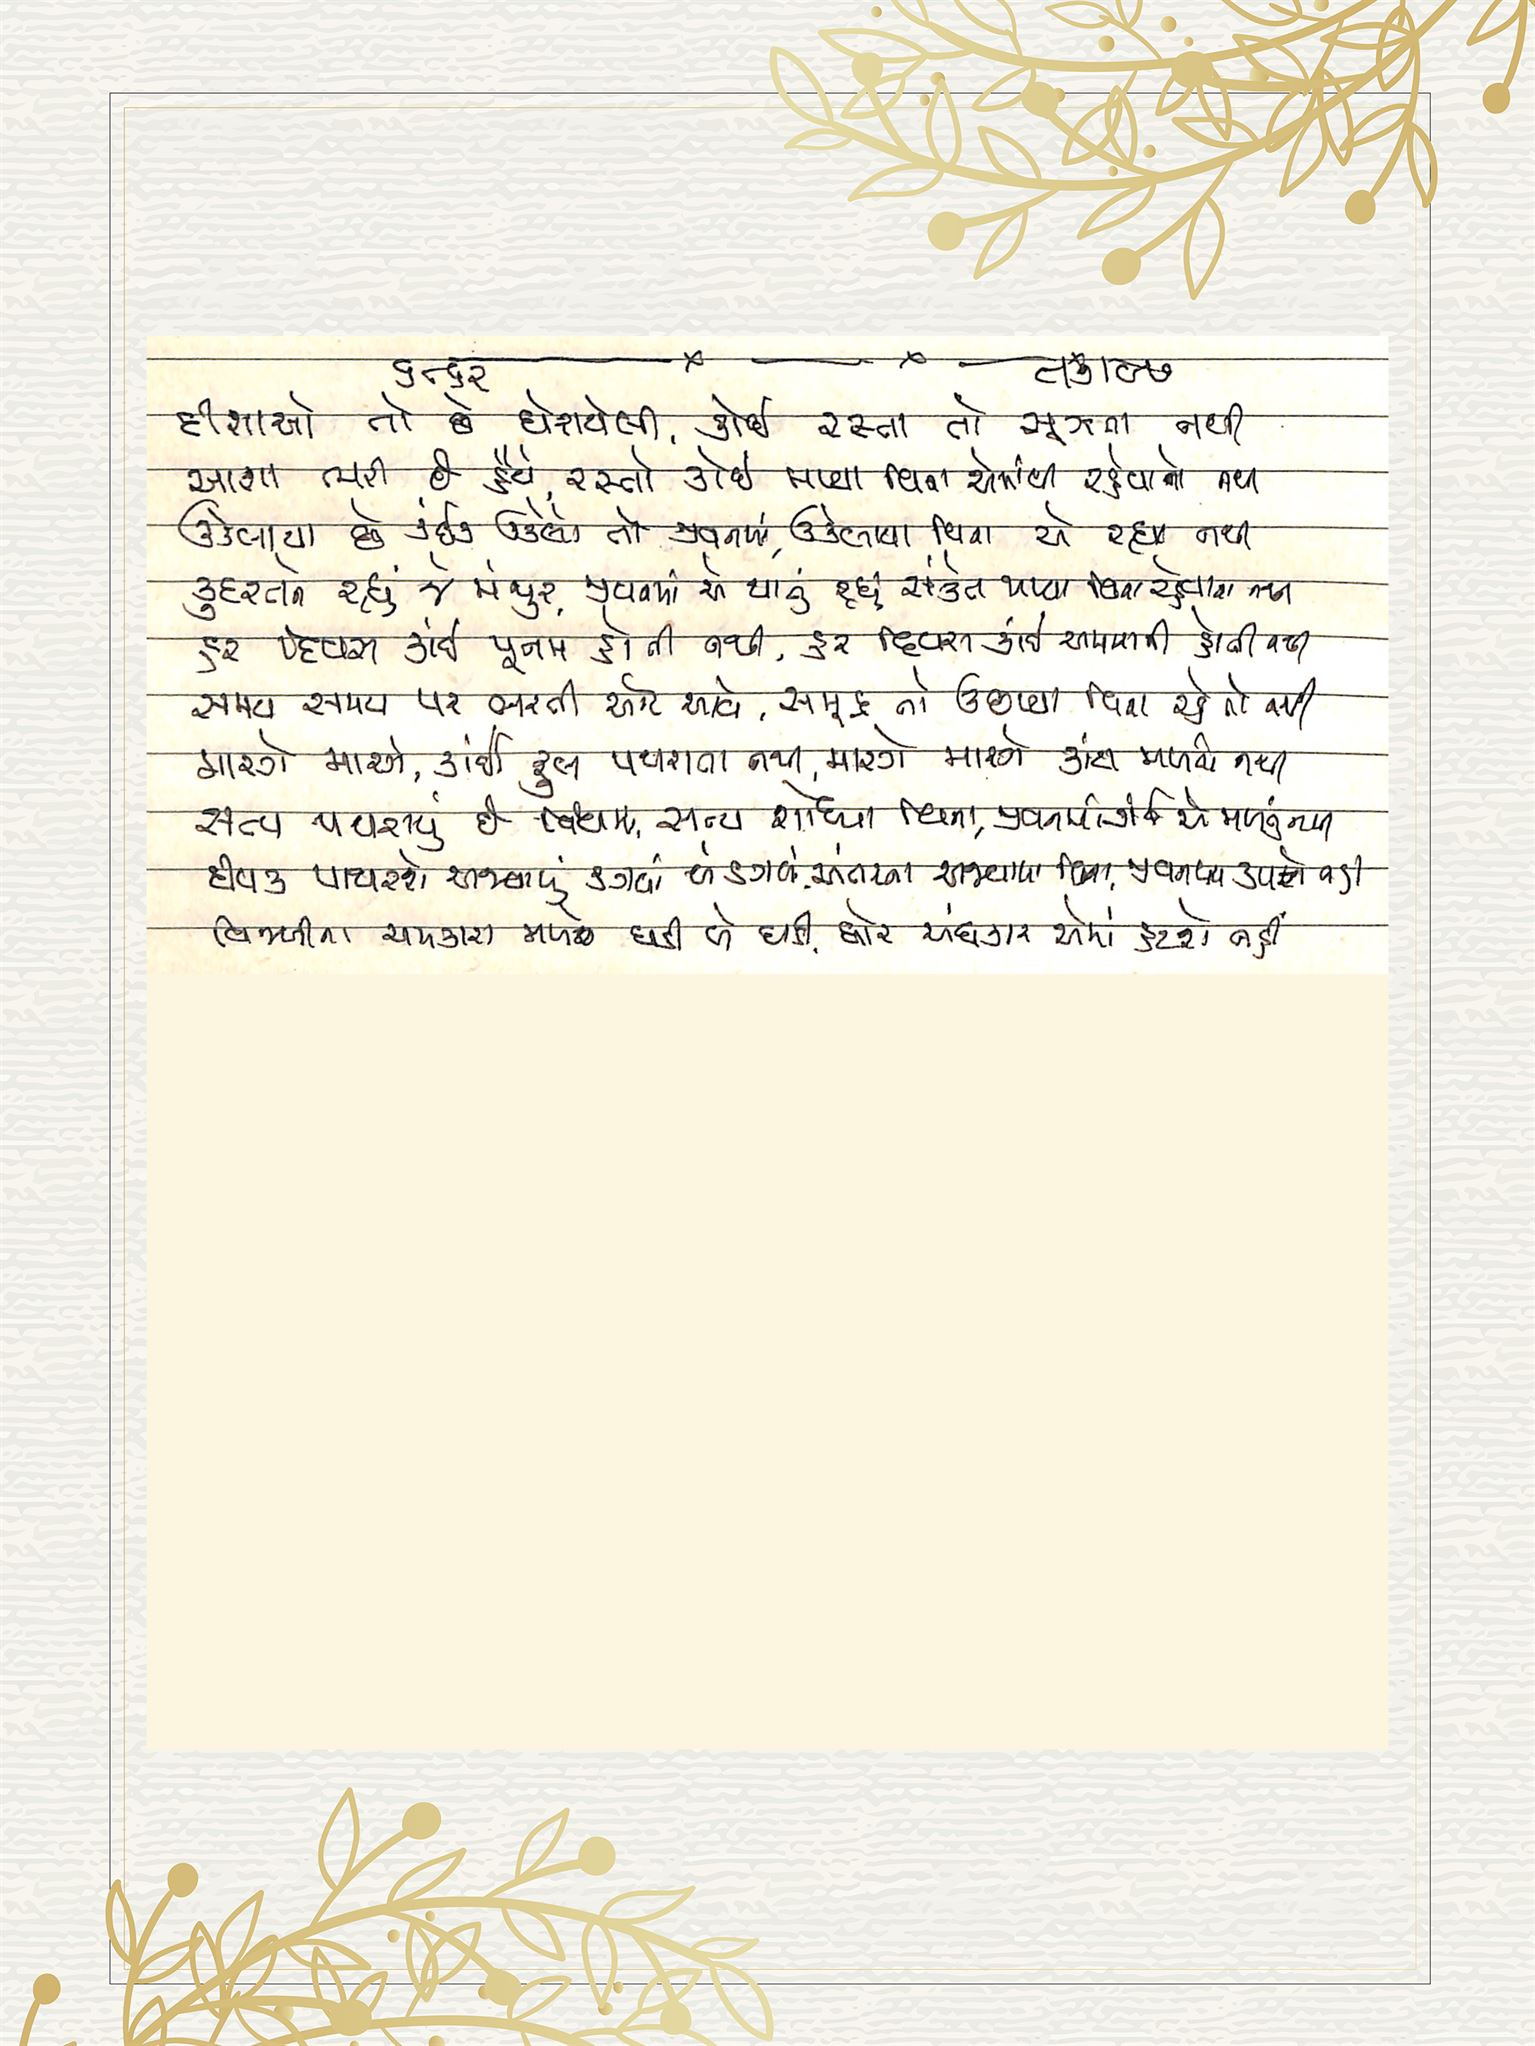 દીશાઓ તો છે ઘેરાયેલી, કોઈ રસ્તા તો સૂઝતા નથી
આશા ભરી છે હૈયે, રસ્તો કોઈ આપ્યા વિના એમાંથી રહેવાનો નથી
ઉકેલાયા છે કંઈક ઉકેલો તો જીવનમાં, ઉકેલાયા વિના એ રહ્યા નથી
કુદરતને રહ્યું જે મંજુર, જીવનમાં એ થાતું રહ્યું સંકેત આપ્યા વિના રહેવાના નથી
હર દિવસ કાંઈ પૂનમ હોતી નથી, હર દિવસ કાંઈ અમાસની હોતી નથી
સમય સમય પર ભરતી ઓટ આવે, સમૂદ્ર તો ઉછળ્યા વિના રહેતો નથી
મારગે મારગે, કાંઈ ફુલ પથરાતા નથી, મારગે મારગે કાંટા મળતા નથી
સત્ય પથરાયું છે વિશ્વમાં, સત્ય શોધ્યા વિના, જીવનમાં કાંઈ એ મળતું નથી
દીપક પાથરશે અજવાળું ડગલાં બે ડગલાં, અંતરના અજવાળા વિના, જીવનપથ કપાશે નહીં
વિજળીના ચમકારા મળશે ઘડી બે ઘડી, ઘોર અંધકાર એમાં હટશે નહીં